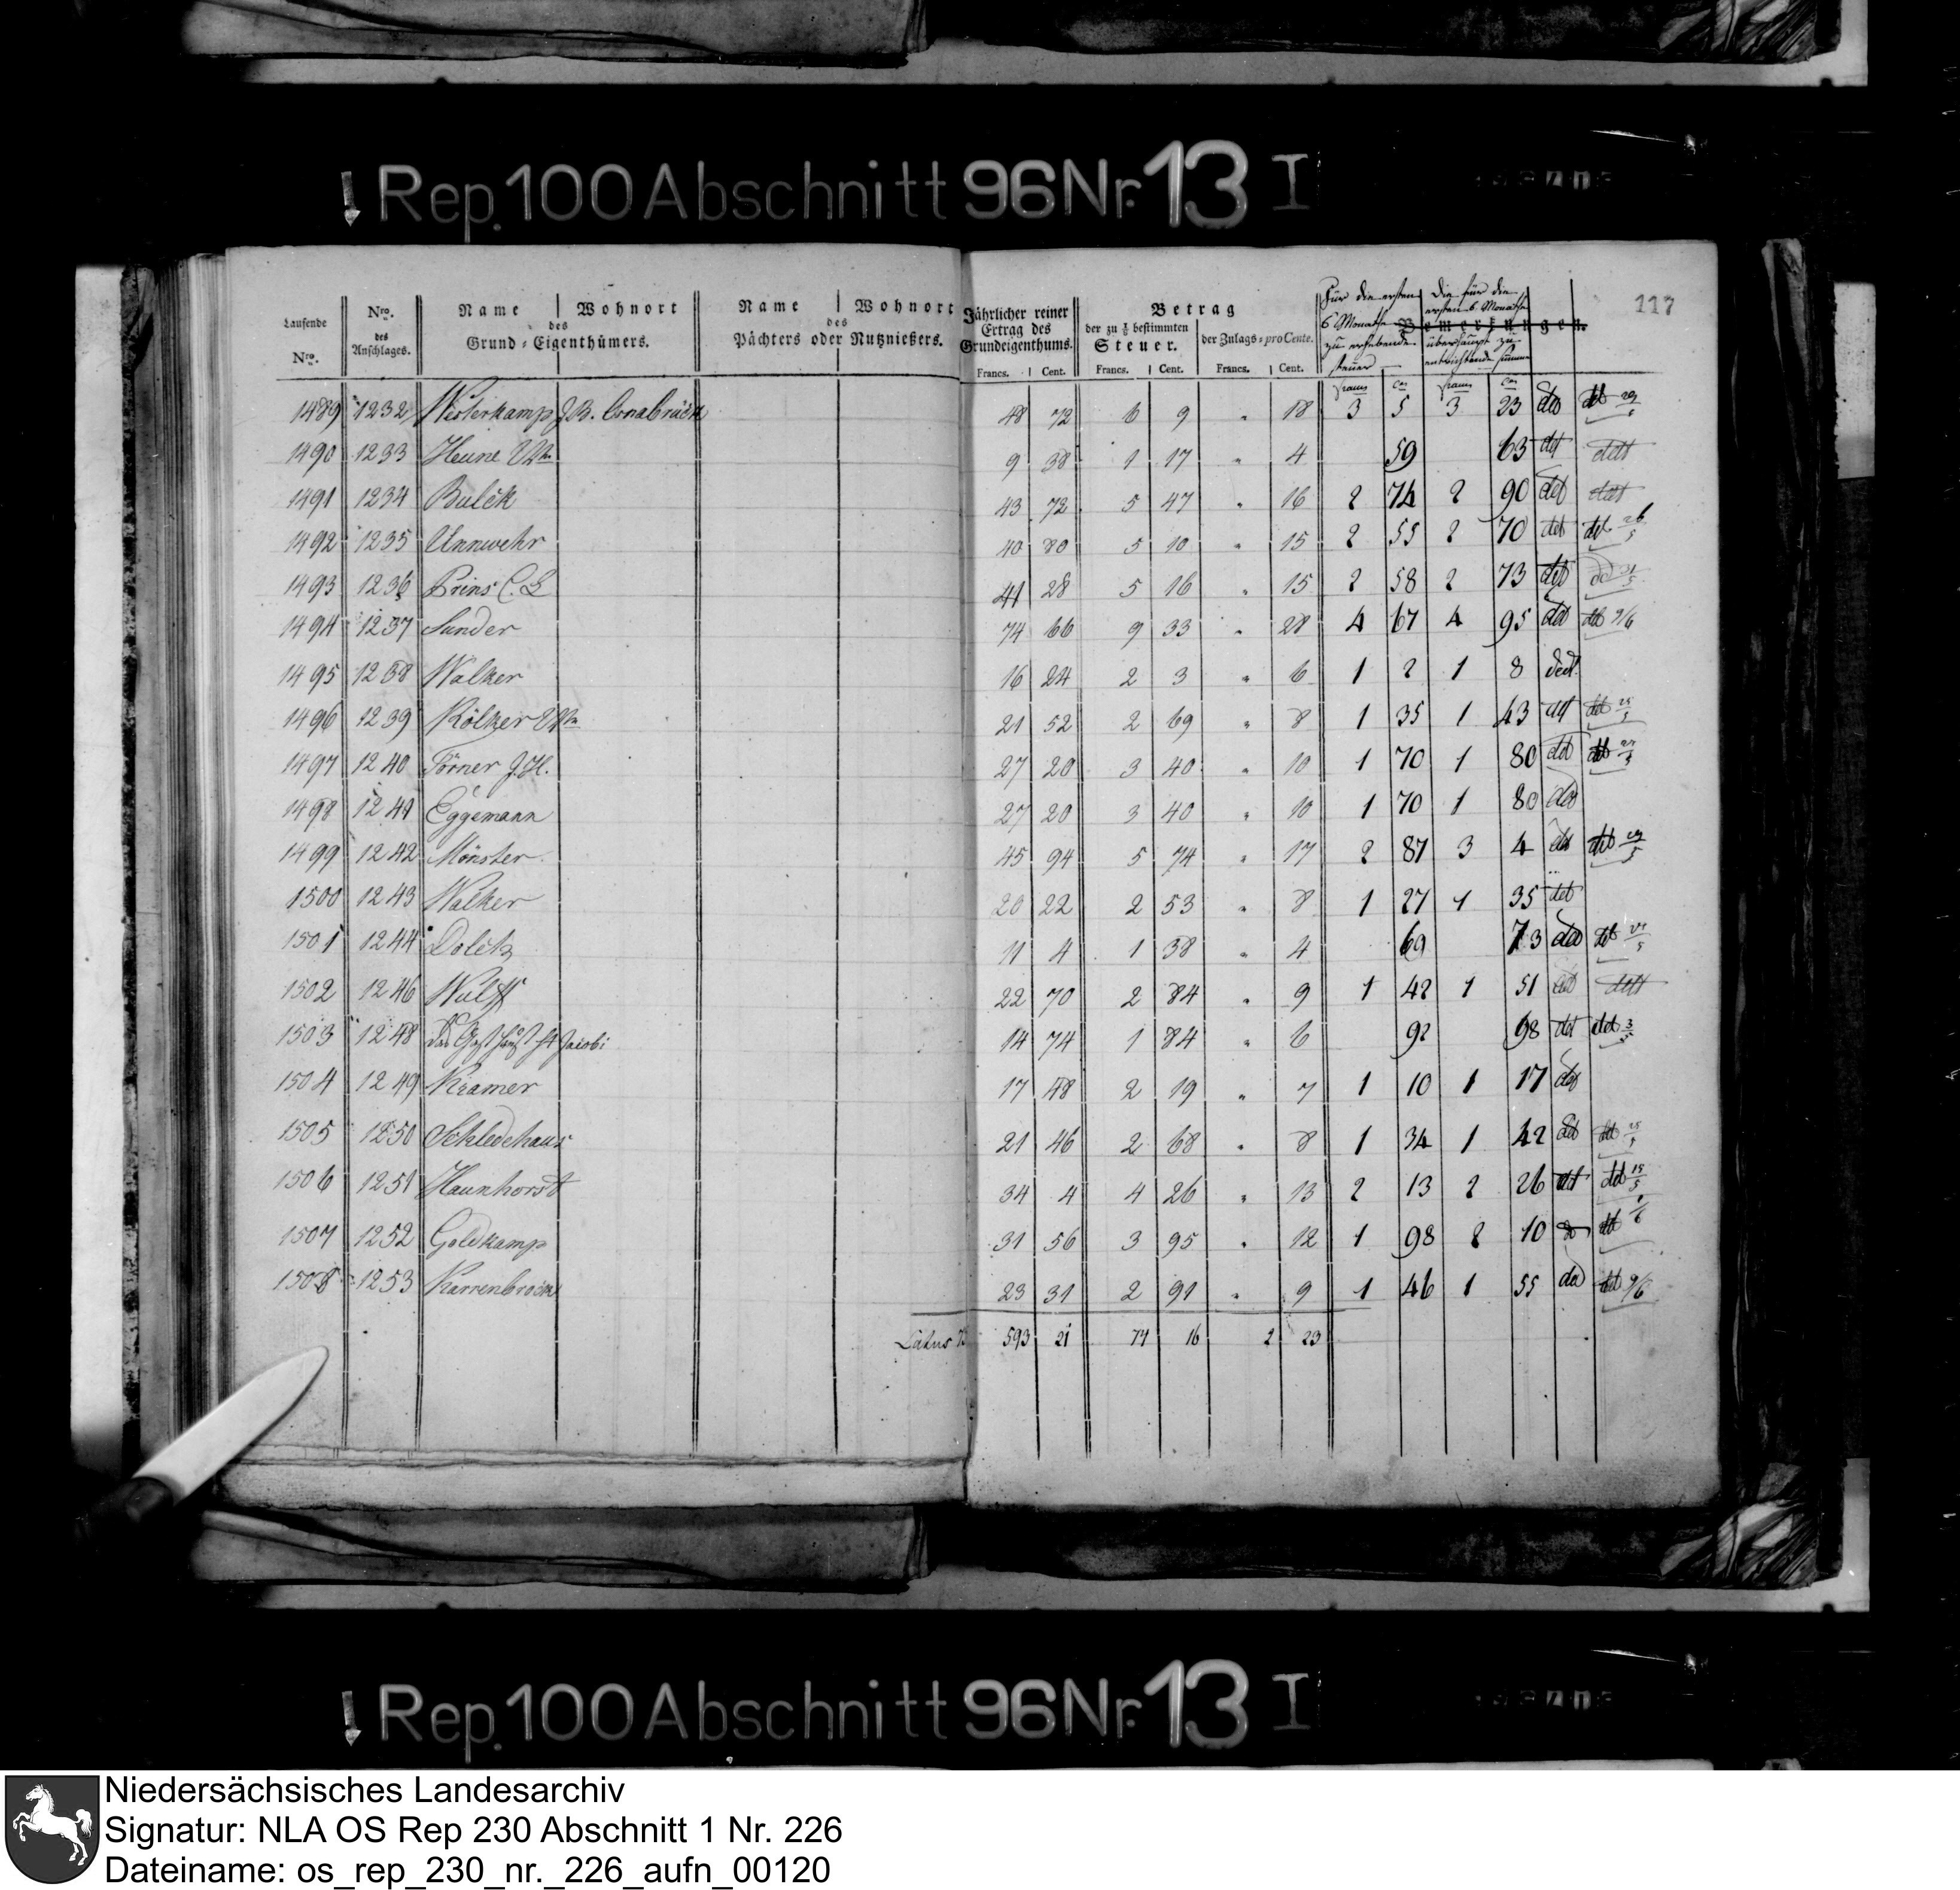 Rep. 100 Abschnitt 96 Nr. 13 I
117
Laufende Nro. | Nro. des Anschlages. | Name | Wohnort des Grund-Eigenthümers. | Name | Wohnort des Pächters oder Nutznießers. | Jährlicher reiner Ertrag des Grundeigenthums. Francs. Cent. | Betrag der zu 1/8 bestimmten Steuer. Francs. Cent. | der Zulags-pro Cente. Francs. Cent. | Bemerkungen.
Für die ersten 6 Monathe zu erhebende Steuer | Die für die ersten 6 Monathe überhaupt zu entrichtende Summe
1489 1232 Westerkamp J. B. Osnabrück 48 72 6 9 " 18 3 5 3 23 det det 29/5
1490 1233 Heune 9 38 1 17 " 4 59 63 det dett
1491 1234 Bulck 43 72 5 47 " 16 2 74 2 90 det dett
1492 1235 Unnwehr 40 80 5 10 " 15 2 55 2 70 det det 26/5
1493 1236 Prins C. L 41 28 5 16 " 15 2 58 2 73 det
1494 1237 Sander 74 66 9 33 " 28 4 67 4 95 det det 9/6
1495 1238 Walker 16 24 2 3 " 6 1 2 1 8 dedt
1496 1239 Kölker 21 52 2 69 " 8 1 35 1 43 det det 25/5
1497 1240 Törner J. H. 27 20 3 40 " 10 1 70 1 80 det det
1498 1241 Eggemann 27 20 3 40 " 10 1 70 1 80 det
1499 1242 Mönster 45 94 5 74 " 17 2 87 3 4 det det 29/5
1500 1243 Walker 20 22 2 53 " 8 1 27 1 35 det
1501 1244 Doletz 11 4 1 38 " 4 69 73 det det
1502 1246 Wulff 22 70 2 84 " 9 1 42 1 51 det dett
1503 1248 Das Gasthaus St Jacobi 14 74 1 84 " 6 92 98 det det 3/5
1504 1249 Kramer 17 48 2 19 " 7 1 10 1 17 det
1505 1250 Schledehaus 21 46 2 68 " 8 1 34 1 42 det det 25/5
1506 1251 Haunhorst 34 4 4 26 " 13 2 13 2 26 det det 15/5
1507 1252 Goldkamp 31 56 3 95 " 12 1 98 2 10 det
1508 1253 Karrenbrock 23 31 2 91 " 9 1 46 1 55 det det 9/6
Latus 593 21 74 16 2 23
Rep. 100 Abschnitt 96 Nr. 13 I
Niedersächsisches Landesarchiv
Signatur: NLA OS Rep 230 Abschnitt 1 Nr. 226
Dateiname: os_rep_230_nr._226_aufn_00120